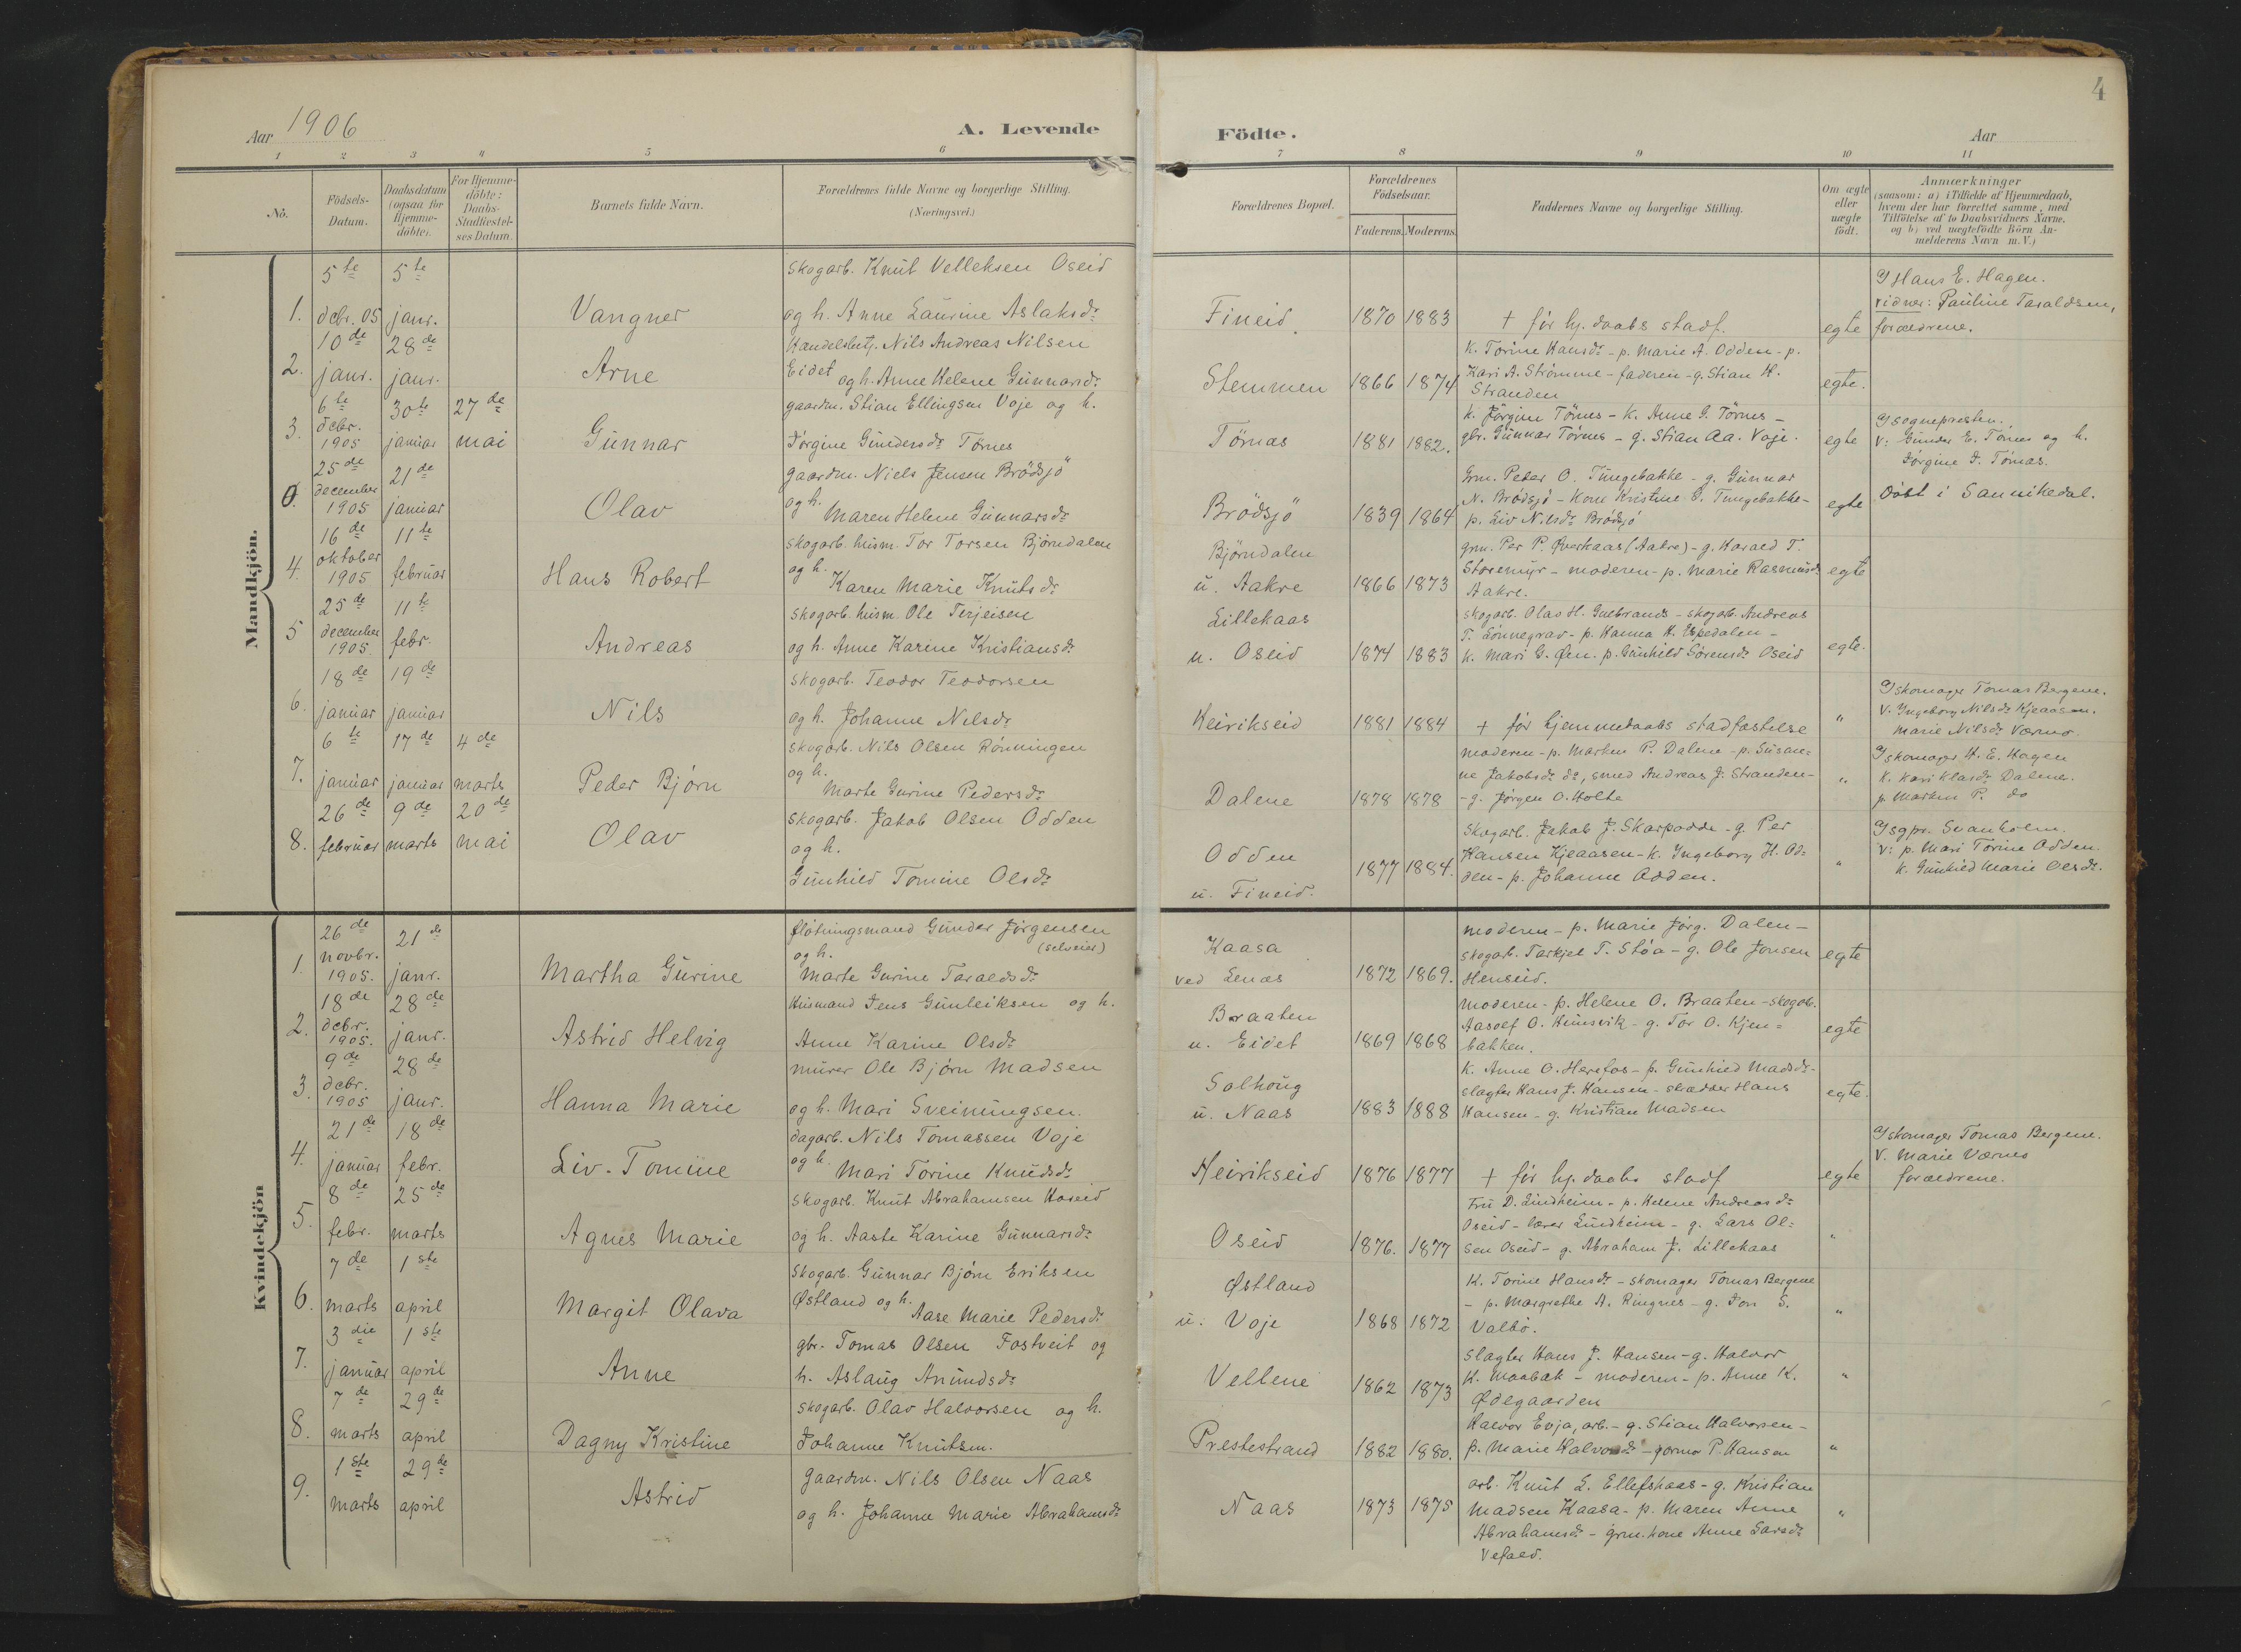 4
Aar 1906
A. Levende Födte.
Aar
1 2 3 4 5 6 7 8 9 10 11
No.
Födsels-
Datum.
Daabsdatum
(ogsaa for
Hjemme-
döbte).
For Hjemme-
döbte:
Daabs-
Stadfæstel-
ses Datum.
Barnets fulde Navn.
Forældrenes fulde Navne og borgerlige Stilling.
(Næringsvei.)
Forældrenes Bopæl.
Forældrenes
Födselsaar.
Faderens. Moderens.
Faddernes Navne og borgerlige Stilling.
Om ægte
eller
uægte
födt.
Anmærkninger
(saasom: a) i Tilfælde af Hjemmedaab,
hvem der har forrettet samme, med
Tilföielse af to Daabsvidners Navne,
og b) ved uægtefödte Börn An-
melderens Navn m. V.)
Mandkjön.
1. 5te decbr. 05 5te janr. Vangner
skogarb. Knut Velleksen Oseid
og h. Anne Laurine Aslaksdr
Fineid 1870 1883
+ før hj. daabs stadf.
egte
af Hans E. Hagen.
vidner: Pauline Taraldsen,
forældrene.
2. 10de janr. 28de janr. Arne
Handelsbetj. Nils Andreas Nilsen
Eidet og h. Anne Helene Gunnarsdr
Stemmen 1866 1874
k. Torine Hansdr - p. Marie A. Odden - p.
Kari A. Strömme - faderen - g. Stian H.
Stranden
egte.
3. 6te decbr. 1905 30te januar 27de mai Gunnar
gaardm. Stian Ellingsen Voje og h.
Jörgine Gundersdr Törnes
Törnas 1881 1882.
k. Jörgine Törnes - k. Anne G. Törnes -
gbr. Gunnar Törnes - g. Stian Aa. Voje.
egte
af sognepresten.
V: Gunder E. Törnes og h.
Jörgine J. Törnas.
0. 25de december 1905 21de januar Olav
gaardm. Niels Jensen Brödsjö
og h.
Maren Helene Gunnarsdr
Brödsjö 1839 1864
Grm. Peder O. Tungebakke - g. Gunnar
N. Brödsjö - kone Kristine G. Tungebakke -
p. Liv Nilsdr Brödsjö
egte
Döbt i Sannikedal.
4. 16de oktober 1905 11te februar Hans Robert
skogarb. husm. Tor Torsen Bjørndalen
og h.
Karen Marie Knutsdr
Björndalen
u. Aakre 1866 1873
grm. Per P. Øverkaas (Aakre) - g. Harald T.
Storemyr - moderen - p. Marie Rasmusdr
Aakre.
egte
5 25de december 1905. 11te febr. Andreas
skogarb. husm. Ole Terjeisen
og h. Anne Karine Kristiansdr
Lillekaas
u. Oseid 1874 1883
skogarb. Olav H. Gulbrands - skogarb. Andreas
T. Lönnegrav - p. Hanna H. Espedalen -
k. Mari G. Øen. p. Gunhild Sörensdr Oseid
egte.
6. 18de januar 19de januar Nils
skogarb. Teodor Teodorsen
og h. Johanne Nilsdr
Heirikseid 1881 1884
+ før hjemmedaabs stadfæstelse
"
af skomager Tomas Bergene.
V. Ingeborg Nilsdr Kjeaasen.
Marie Nilsdr Værnes.
7. 6te januar 17de januar 4de marts Peder Bjørn
skogarb. Nils Olsen Rönningen
og h.
Marte Gurine Pedersdr
Dalene 1878 1878
moderen - p. Marken P. Dalene - p. Susan=
ne Jakobsdr do, smed Andreas J. Stranden -
- g. Jørgen O. Holte
"
af skomager H. E. Hagen
K. Kari Klasdr Dalene.
p. Marken P. do
8. 26de februar 9de marts 20de mai Olav
skogarb. Jakob Olsen Odden
og h.
Gunhild Tomine Olsdr
Odden
u. Fineid. 1877 1884.
skogarb. Jakob J. Skarpodde - g. Per
Hansen Kjeaasen - k. Ingeborg H. Od=
den - p. Johanne Odden.
"
af sgpr. Svanholm.
V: p. Mari Torine Odden.
k. Gunhild Marie Olsdr.
Kvindekjön
1. 26de novbr. 1905. 21de janr. Martha Gurine
flötningsmand Gunder Jörgensen
(selveier)
og h.
Marte Gurine Taraldsdr
Kaasa
ved Lenæs 1872 1869.
moderen - p. Marie Jörg. Dalen -
skogarb. Tarkjel T. Støa - g. Ole Jonsen
Henseid.
egte
2. 18de decbr. 1905. 28de janr. Astrid Helvig
Husmand Jens Gunleiksen og h.
Anne Karine Olsdr
Braaten
u. Eidet 1869 1868
moderen - p. Helene O. Braaten - skogarb.
Aasolf O. Humsvik - g. Tor O. Kjen=
bakken.
egte
3. 9de decbr. 1905 28de janr. Hanna Marie
murer Ole Bjørn Madsen
og h. Mari Sveinungsen.
Solhöug
u. Naas 1883 1888
K. Anne O. Herefos - p. Gunhild Madsdr -
slagter Hans J. Hansen - skrædder Hans
Hansen - g. Kristian Madsen
egte.
4. 21de januar 18de febr. Liv-Tomine
dagarb. Nils Tomassen Voje
og h. Mari Torine Knudsdr
Heirikseid 1876 1877
+ før hj. daabs stadf
egte
af skomager Tomas Bergene.
V. Marie Værnes
forældrene.
5. 8de febr. 25de marts Agnes Marie
skogarb. Knut Abrahamsen Haseid
og h. Aaste Karine Gunnarsdr
Oseid 1876. 1877
Fru D. Lindheim - p. Helene Andreasdr
Oseid - lærer Lindheim - g. Lars Ol=
sen Oseid - g. Abraham J. Lillekaas
"
6. 7de marts 1ste april Margit Olava
skogarb. Gunnar Bjørn Eriksen
Østland og h.
Aase Marie Pedersdr
Østland
u. Voje 1868 1872
K. Torine Hansdr - skomager Tomas Bergene
- p. Margrethe A. Ringnes - g. Jon S.
Valbö.
"
7. 3die januar 1ste april Anne
gbr. Tomas Olsen Fostveit og
h. Aslaug Anundsdr
Vellene 1862 1873
slagter Hans J. Hansen - g. Halvor
K. Moabak - moderen - p. Anne K.
Ødegaarden
"
8. 7de marts 29de april Dagny Kristine
skogarb. Olav Halvorsen og h.
Johanne Knutsen.
Prestestrand 1882 1880.
Halvor Evja, arb. - g. Stian Halvorsen -
p. Marie Halvorsdr - P. Hansen
"
9. 1ste marts 29de april Astrid
gaardm. Nils Olsen Naas
og h. Johanne Marie Abrahamsdr
Naas 1873 1875
arb. Knut L. Ellefshaas - g. Kristian
Madsen Kaasa - p. Maren Anne
Abrahamsdr - grm. kone Anne Larsdr
Vefald.
"